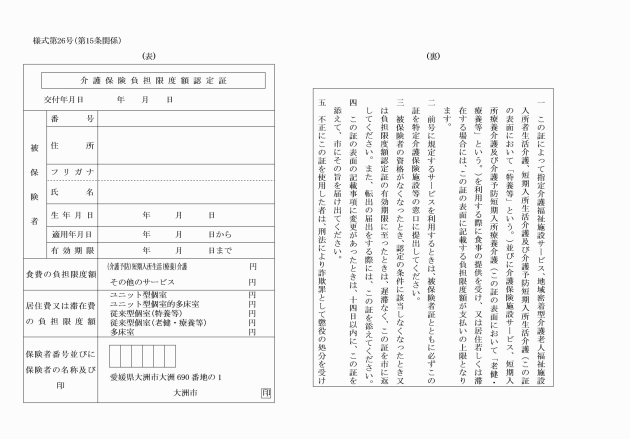 様式第26号(第15条関係)
(表)
介護保険負担限度額認定証
交付年月日　年　月　日
被保険者
番号
住所
フリガナ
氏名
生年月日　年　月　日
適用年月日　年　月　日から
有効期限　年　月　日まで
食費の負担限度額
(介護予防)短期入所生活(療養)介護　円
その他のサービス　円
居住費又は滞在費
の負担限度額
ユニット型個室　円
ユニット型個室的多床室　円
従来型個室(特養等)　円
従来型個室(老健・療養等)　円
多床室　円
保険者番号並びに
保険者の名称及び
印
愛媛県大洲市大洲690番地の1
大洲市　印
(裏)
一　この証によって指定介護福祉施設サービス、地域密着型介護老人福祉施設
入所者生活介護、短期入所生活介護及び介護予防短期入所生活介護(この証
の表面において「特養等」という。)並びに介護保険施設サービス、短期入
所療養介護及び介護予防短期入所療養介護(この証の表面において「老健・
療養等」という。)を利用する際に食事の提供を受け、又は居住若しくは滞
在する場合には、この証の表面に記載する負担限度額が支払いの上限となり
ます。
二　前号に規定するサービスを利用するときは、被保険者証とともに必ずこの
証を特定介護保険施設等の窓口に提出してください。
三　被保険者の資格がなくなったとき、認定の条件に該当しなくなったとき又
は負担限度額認定証の有効期限に至ったときは、遅滞なく、この証を市に返
してください。また、転出の届出をする際には、この証を添えてください。
四　この証の表面の記載事項に変更があったときは、十四日以内に、この証を
添えて、市にその旨を届け出てください。
五　不正にこの証を使用した者は、刑法により詐欺罪として懲役の処分を受け